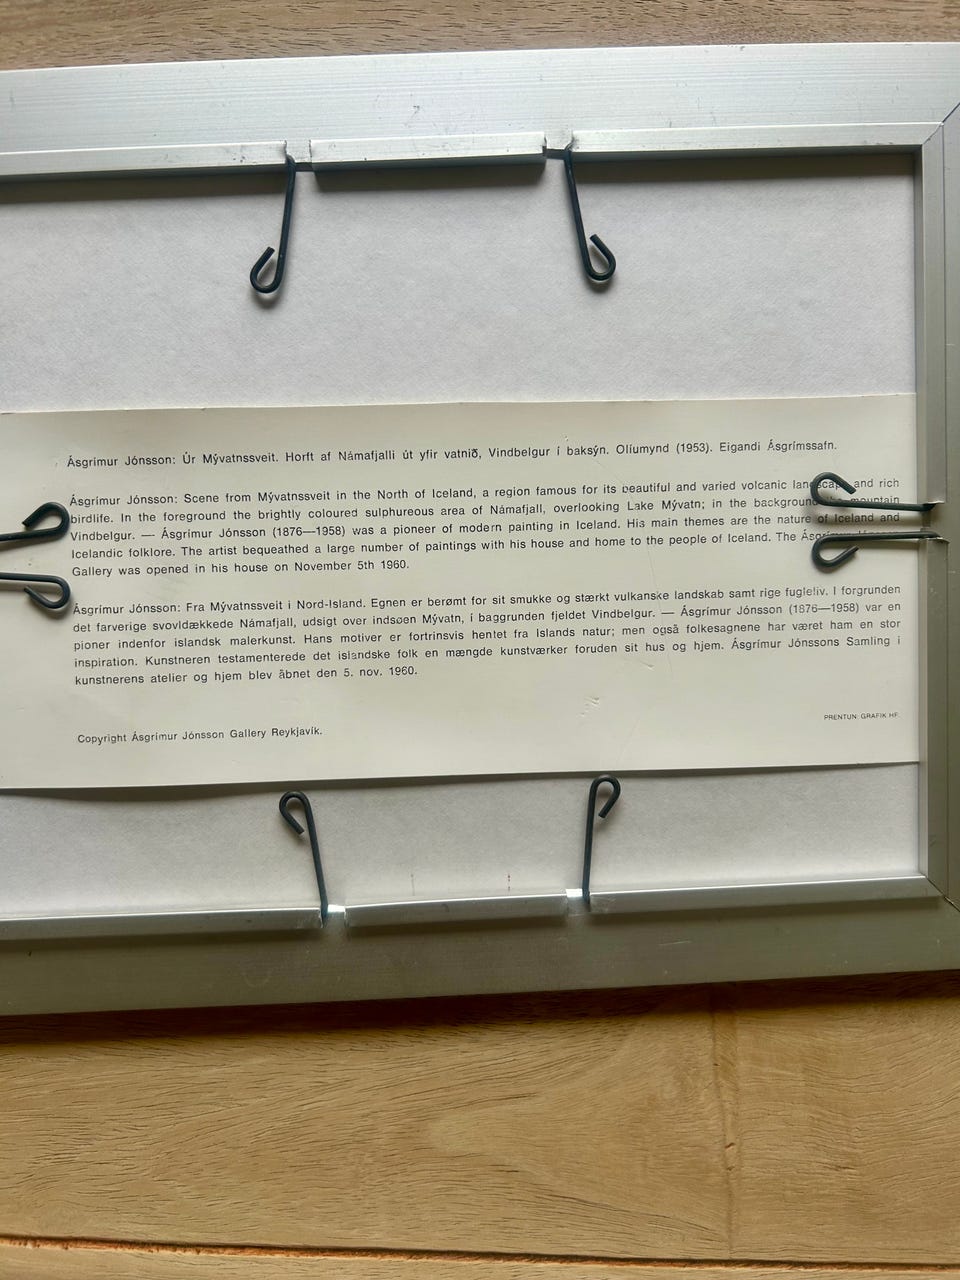 Ásgrímur Jónsson: Úr Mývatnssveit. Horft af Námafjalli út yfir vatnið, Vindbelgur í baksýn. Olíumynd (1953). Eigandi Ásgrímssafn.
Ásgrímur Jónsson: Scene from Mývatnssveit in the North of Iceland, a region famous for its beautiful and varied volcanic landscape and rich
birdlife. In the foreground the brightly coloured sulphureous area of Námafjall, overlooking Lake Mývatn; in the background the mountain
Vindbelgur. — Ásgrímur Jónsson (1876—1958) was a pioneer of modern painting in Iceland. His main themes are the nature of Iceland and
Icelandic folklore. The artist bequeathed a large number of paintings with his house and home to the people of Iceland. The Ásgrímur Jónsson
Gallery was opened in his house on November 5th 1960.
Ásgrímur Jónsson: Fra Mývatnssveit i Nord-Island. Egnen er berømt for sit smukke og stærkt vulkanske landskab samt rige fugleliv. I forgrunden
det farverige svovldækkede Námafjall, udsigt over indsøen Mývatn, i baggrunden fjeldet Vindbelgur. — Ásgrímur Jónsson (1876—1958) var en
pioner indenfor islandsk malerkunst. Hans motiver er fortrinsvis hentet fra Islands natur; men også folkesagnene har været ham en stor
inspiration. Kunstneren testamenterede det islandske folk en mængde kunstværker foruden sit hus og hjem. Ásgrímur Jónssons Samling i
kunstnerens atelier og hjem blev åbnet den 5. nov. 1960.
PRENTUN: GRAFIK HF.
Copyright Ásgrímur Jónsson Gallery Reykjavík.